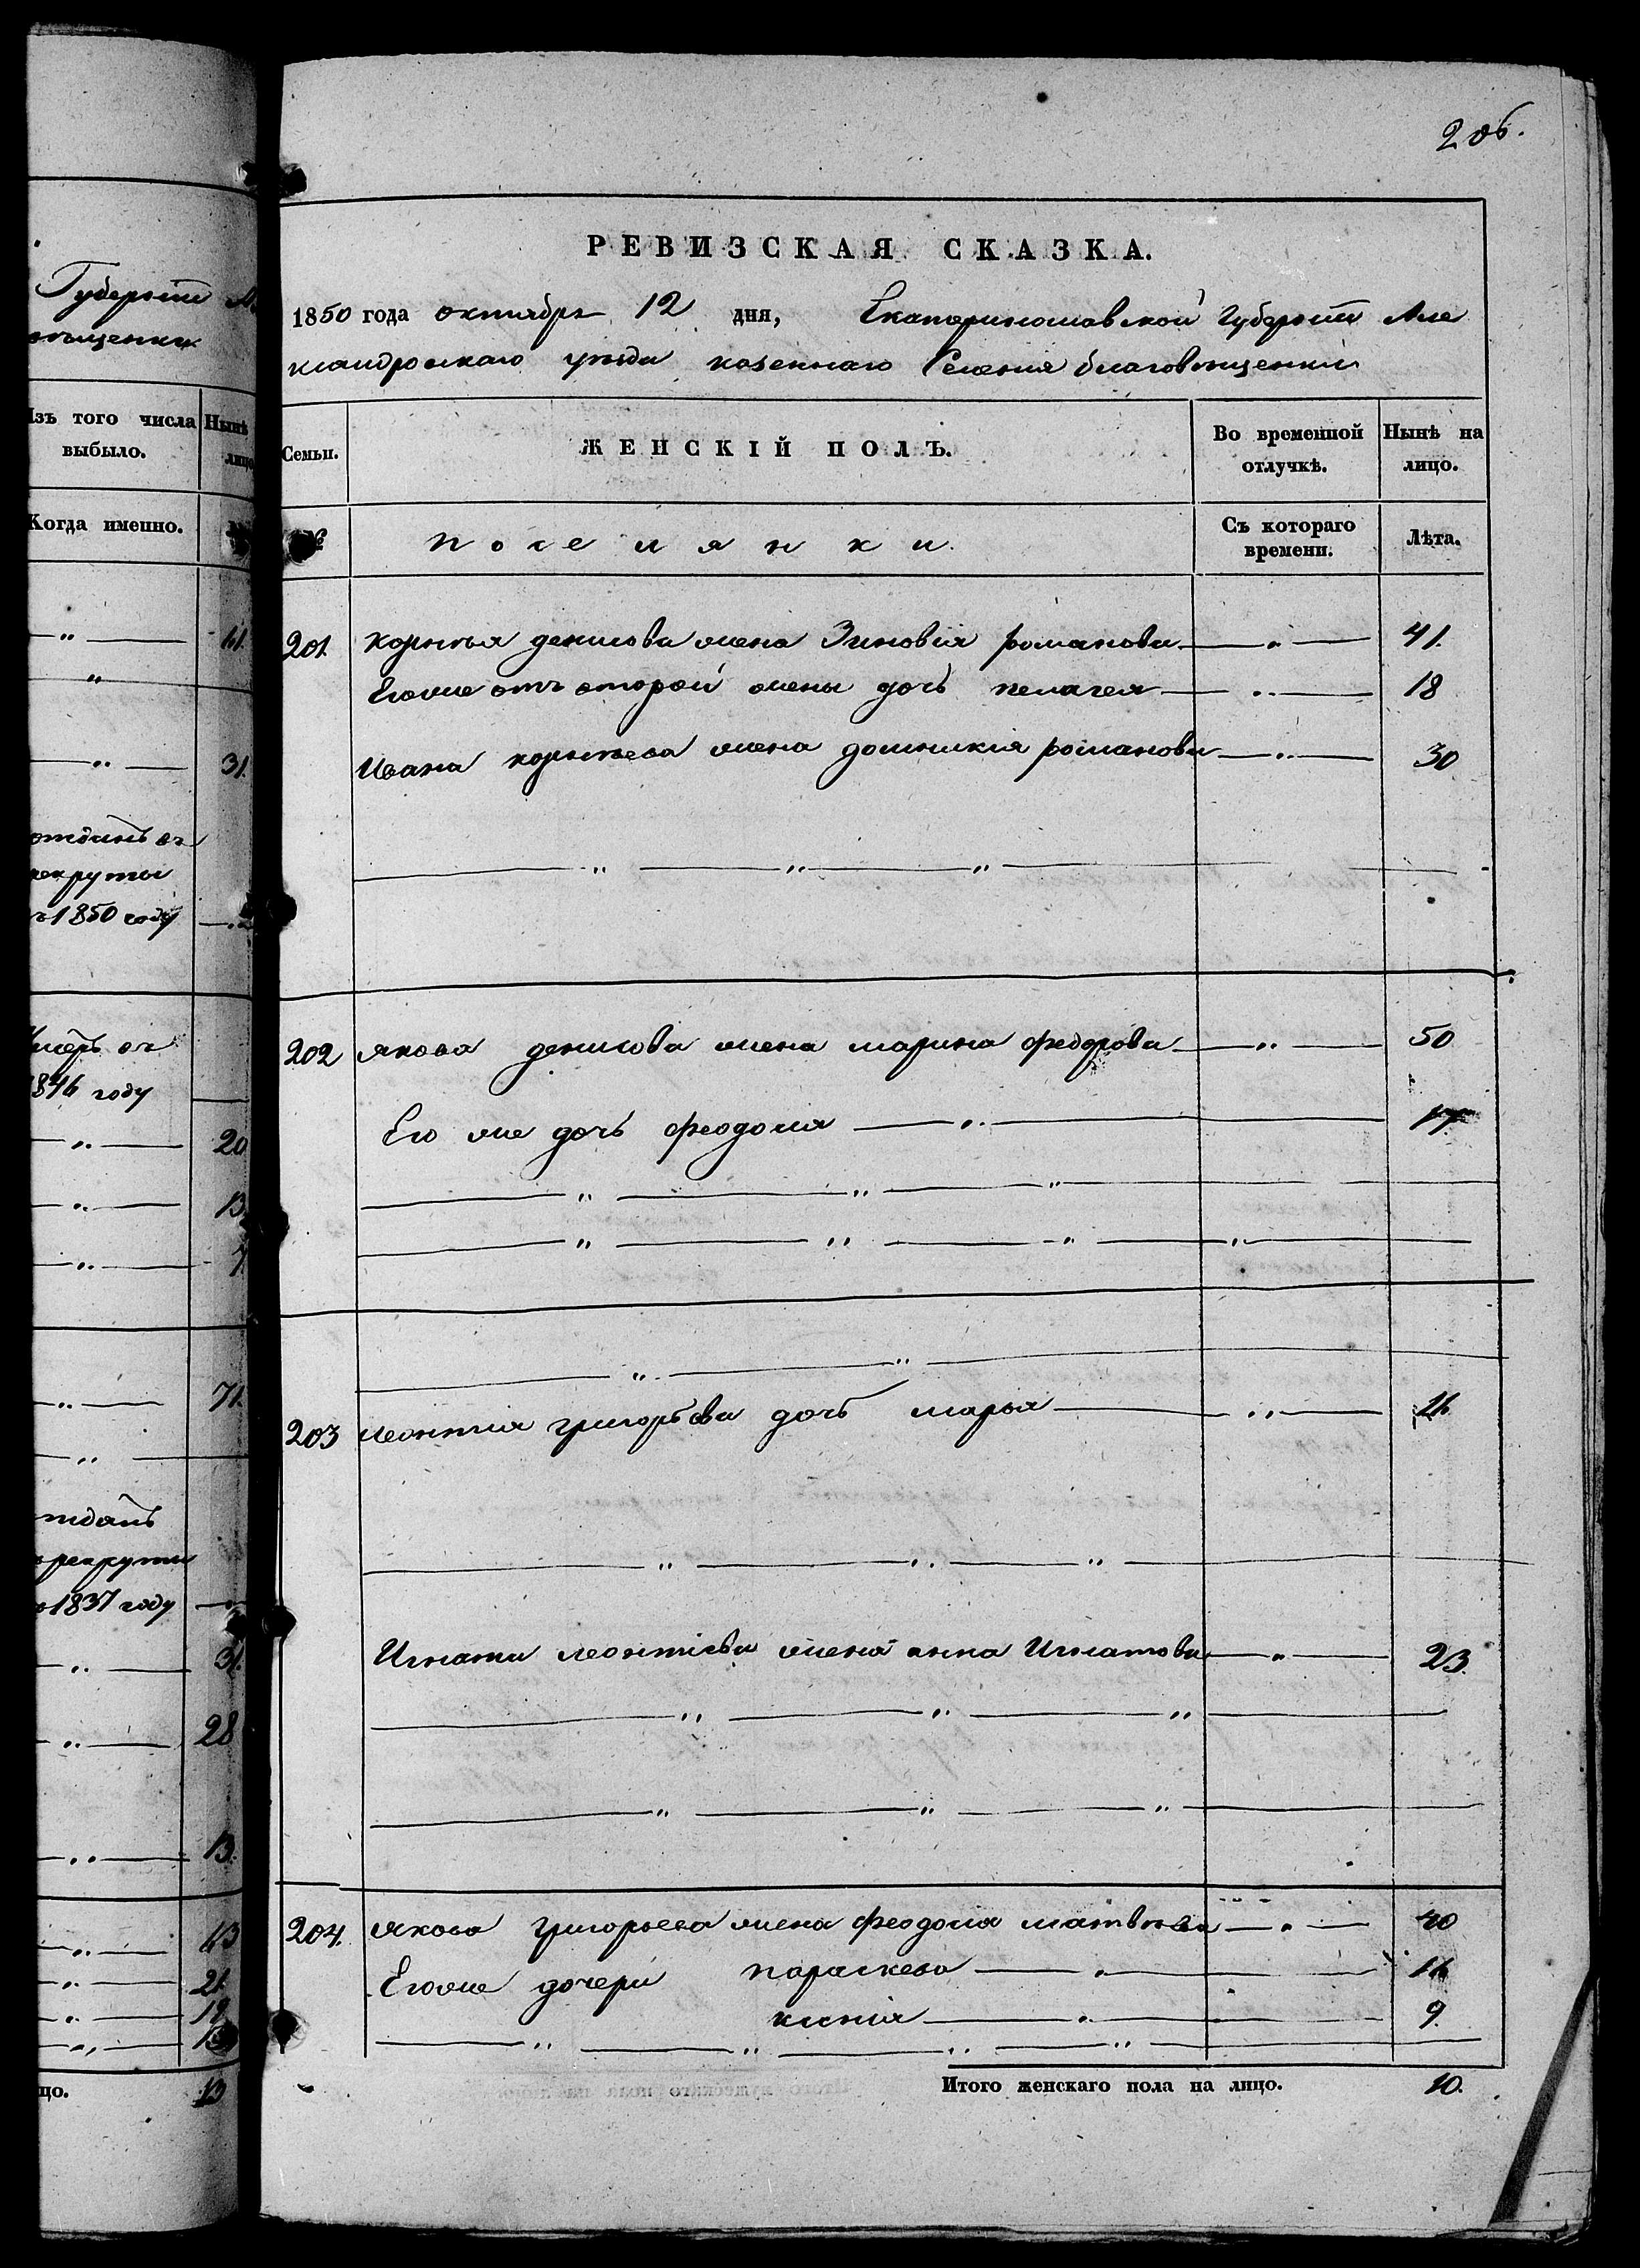 206.
Губернии
Изъ того числа Нынѣ
выбыло. лицо
Когда именно.
41.
31.
рекруты
1850 году
1846 году
20
13
7
71.
рекруты
1837 году
31.
28
13.
43
21
19
13
РЕВИЗСКАЯ СКАЗКА.
1850 года октября 12 дня, Екатеринославской Губернии Але
ксандровскаго уезда казеннаго Селения благовещенки
Семьи. ЖЕНСКІЙ ПОЛЪ. Во временной Нынѣ на
отлучкѣ. лицо.
№ поселянки. Съ котораго Лѣта.
времени.
201 корнѣя денисова жена Зиновія романова — " — 41.
Егоже отъ второй жены дочь пелагея — " — 18
Ивана корнѣева жена домникія романова — " — 30
202 якова денисова жена марина федорова — " — 50
Его же дочь феодосия — " — 17
203 леонтия григорьева дочь марья — " — 16
Игната леонтіева жена анна Игнатова — " — 23.
204. якова григорьева жена феодосия матвѣева — " — 40
Егоже дочери параскева — " — 16
ксенія — " — 9.
Итого женскаго пола на лицо. 10.